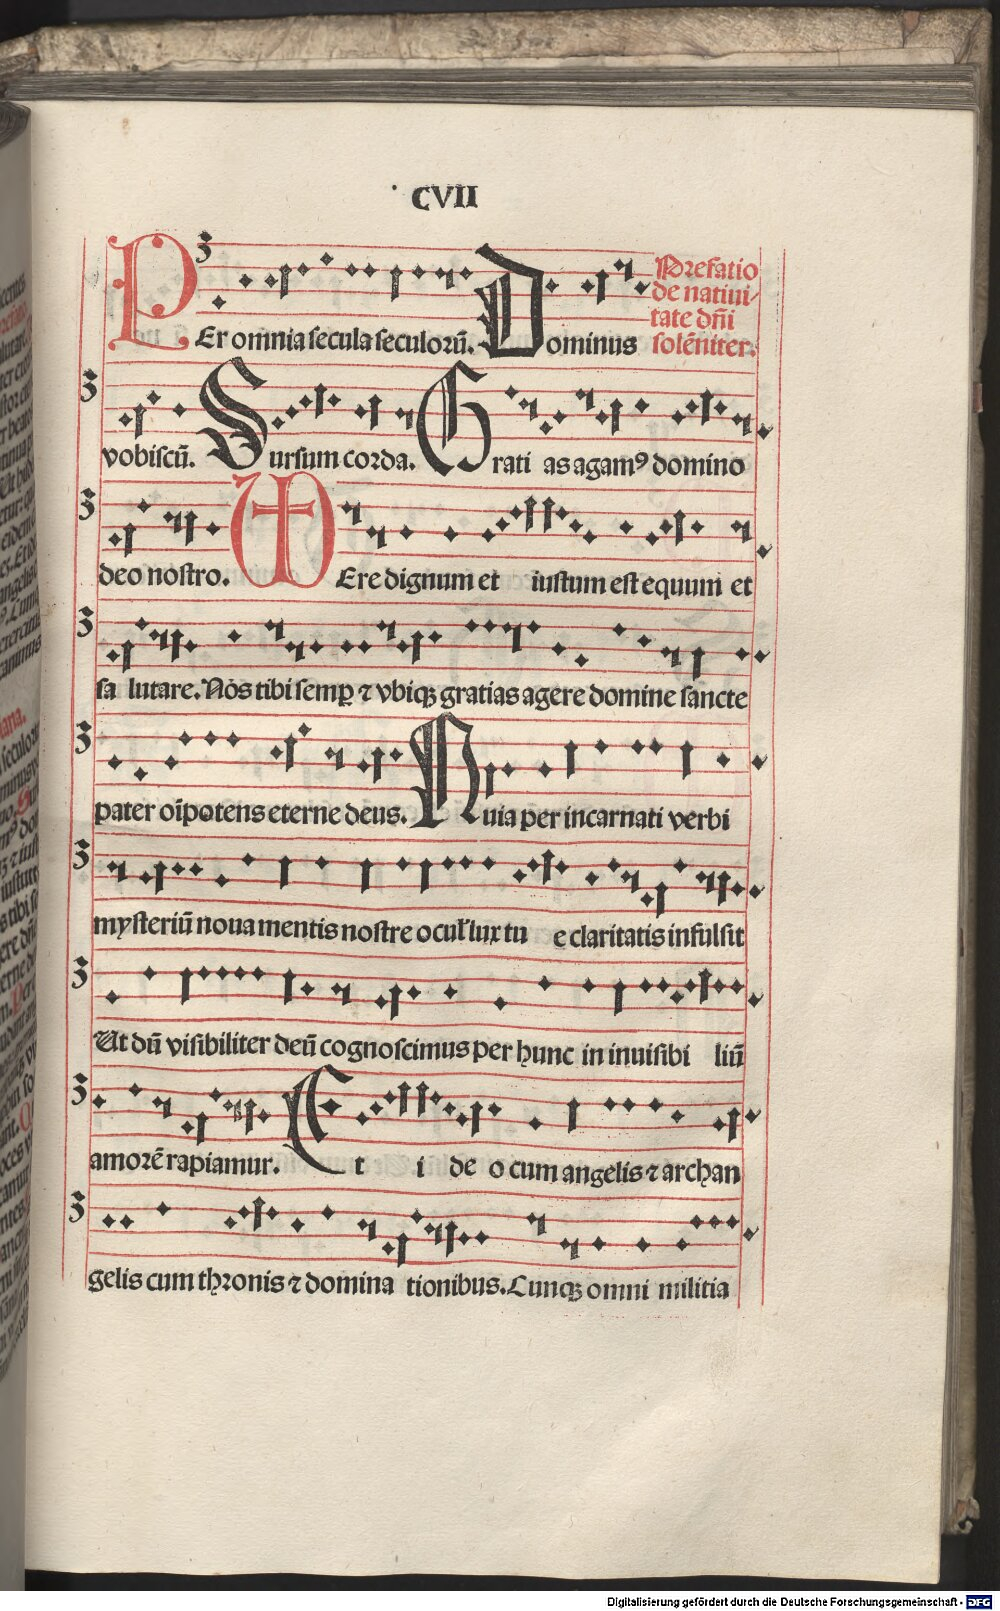 CVII
PEr omnia secula seculorū. Dominus
Prefatio
de natiui/
tate dñi
solēniter.
vobiscū. Sursum corda. Grati as agamꝰ domino
deo nostro. VEre dignum et iustum est equum et
sa lutare. Nos tibi semꝑ ⁊ vbiqꝫ gratias agere domine sancte
pater oīpotens eterne deus. Quia per incarnati verbi
mysteriū noua mentis nostre ocuł lux tu e claritatis infulsit
Ut dū visibiliter deū cognoscimus per hunc in inuisibi liū
amorē rapiamur. Et i de o cum angelis ⁊ archan
gelis cum thronis ⁊ domina tionibus. Cunqꝫ omni militia
Digitalisierung gefördert durch die Deutsche Forschungsgemeinschaft - DFG